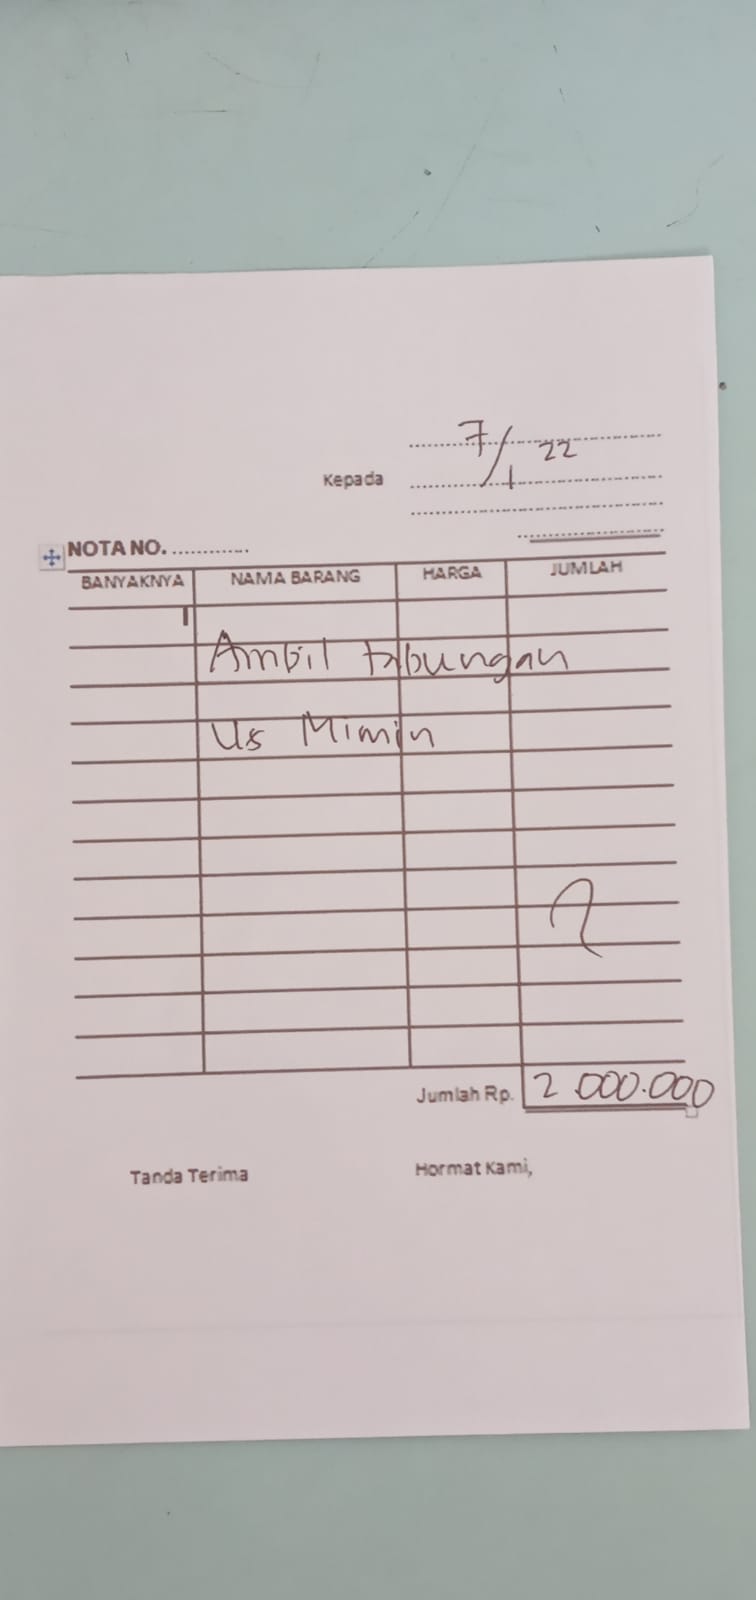 7/1 22
Kepada
NOTA NO. ............
BANYAKNYA NAMA BARANG HARGA JUMLAH
Ambil tabungan
Us Mimin
Jumlah Rp. 2.000.000
Tanda Terima Hormat Kami,